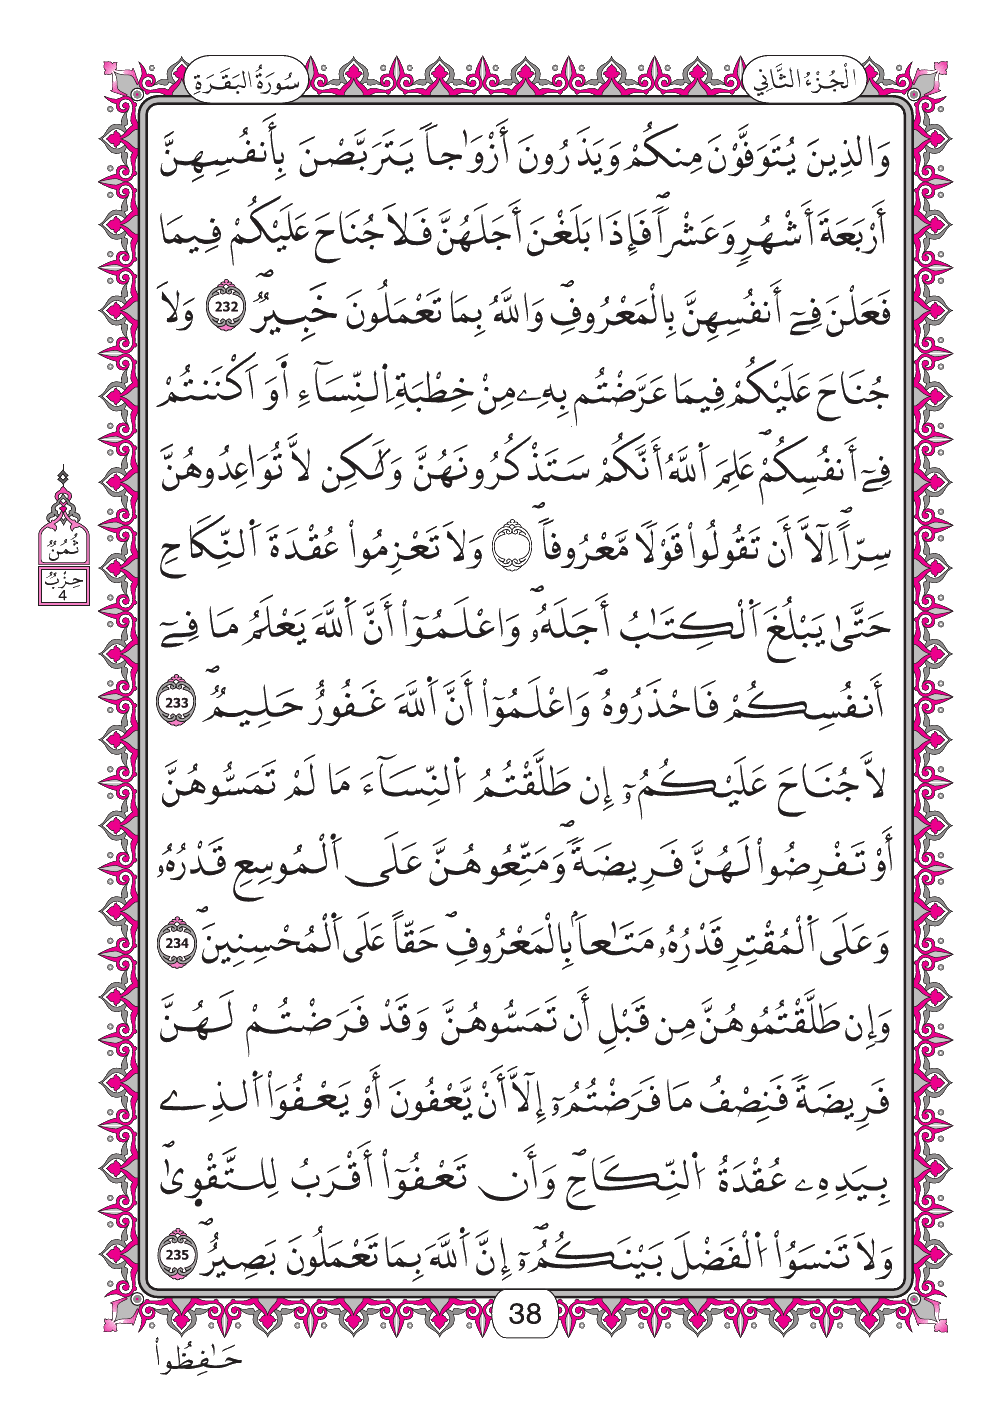 الْجُزْءُ الثَّانِي
سُورَةُ الْبَقَرَةِ
وَالذِينَ يُتَوَفَّوْنَ مِنكُمْ وَيَذَرُونَ أَزْوَٰجاٗ يَتَرَبَّصْنَ بِأَنفُسِهِنَّ
أَرْبَعَةَ أَشْهُرٖ وَعَشْراٗۖ فَإِذَا بَلَغْنَ أَجَلَهُنَّ فَلَا جُنَاحَ عَلَيْكُمْ فِيمَا
فَعَلْنَ فِےٓ أَنفُسِهِنَّ بِالْمَعْرُوفِۖ وَاللَّهُ بِمَا تَعْمَلُونَ خَبِيرٞۖ 232 وَلَا
جُنَاحَ عَلَيْكُمْ فِيمَا عَرَّضْتُم بِهِۦ مِنْ خِطْبَةِ اِ۬لنِّسَآءِ اَوَ اَكْنَنتُمْ
فِےٓ أَنفُسِكُمْۖ عَلِمَ اَ۬للَّهُ أَنَّكُمْ سَتَذْكُرُونَهُنَّ وَلَٰكِن لَّا تُوَاعِدُوهُنَّ
سِرّاًۖ اِلَّآ أَن تَقُولُواْ قَوْلاٗ مَّعْرُوفاٗۖ وَلَا تَعْزِمُواْ عُقْدَةَ اَ۬لنِّكَاحِ
حَتَّىٰ يَبْلُغَ اَ۬لْكِتَٰبُ أَجَلَهُۥۖ وَاعْلَمُوٓاْ أَنَّ اَ۬للَّهَ يَعْلَمُ مَا فِےٓ
أَنفُسِكُمْ فَاحْذَرُوهُۖ وَاعْلَمُوٓاْ أَنَّ اَ۬للَّهَ غَفُورٌ حَلِيمٞۖ 233
لَّا جُنَاحَ عَلَيْكُمُۥٓ إِن طَلَّقْتُمُ اُ۬لنِّسَآءَ مَا لَمْ تَمَسُّوهُنَّ
أَوْ تَفْرِضُواْ لَهُنَّ فَرِيضَةٗۖ وَمَتِّعُوهُنَّ عَلَى اَ۬لْمُوسِعِ قَدْرُهُۥ
وَعَلَى اَ۬لْمُقْتِرِ قَدْرُهُۥ مَتَٰعاَۢ بِالْمَعْرُوفِۖ حَقّاً عَلَى اَ۬لْمُحْسِنِينَۖ 234
وَإِن طَلَّقْتُمُوهُنَّ مِن قَبْلِ أَن تَمَسُّوهُنَّ وَقَدْ فَرَضْتُمْ لَهُنَّ
فَرِيضَةٗ فَنِصْفُ مَا فَرَضْتُمُۥٓ إِلَّآ أَنْ يَّعْفُونَ أَوْ يَعْفُوَاْ اَ۬لذِے
بِيَدِهِۦ عُقْدَةُ اُ۬لنِّكَاحِۖ وَأَن تَعْفُوٓاْ أَقْرَبُ لِلتَّقْوٜىٰۖ
وَلَا تَنسَوُاْ اُ۬لْفَضْلَ بَيْنَكُمُۥٓۖ إِنَّ اَ۬للَّهَ بِمَا تَعْمَلُونَ بَصِيرٌۖ 235
ثُمُنٌ
حِزْبٌ
4
38
حَٰفِظُواْ